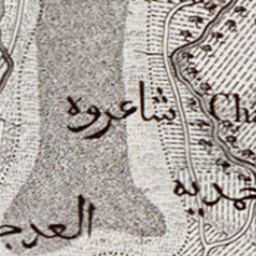 شاعروه
Cha
حمديه
العرج